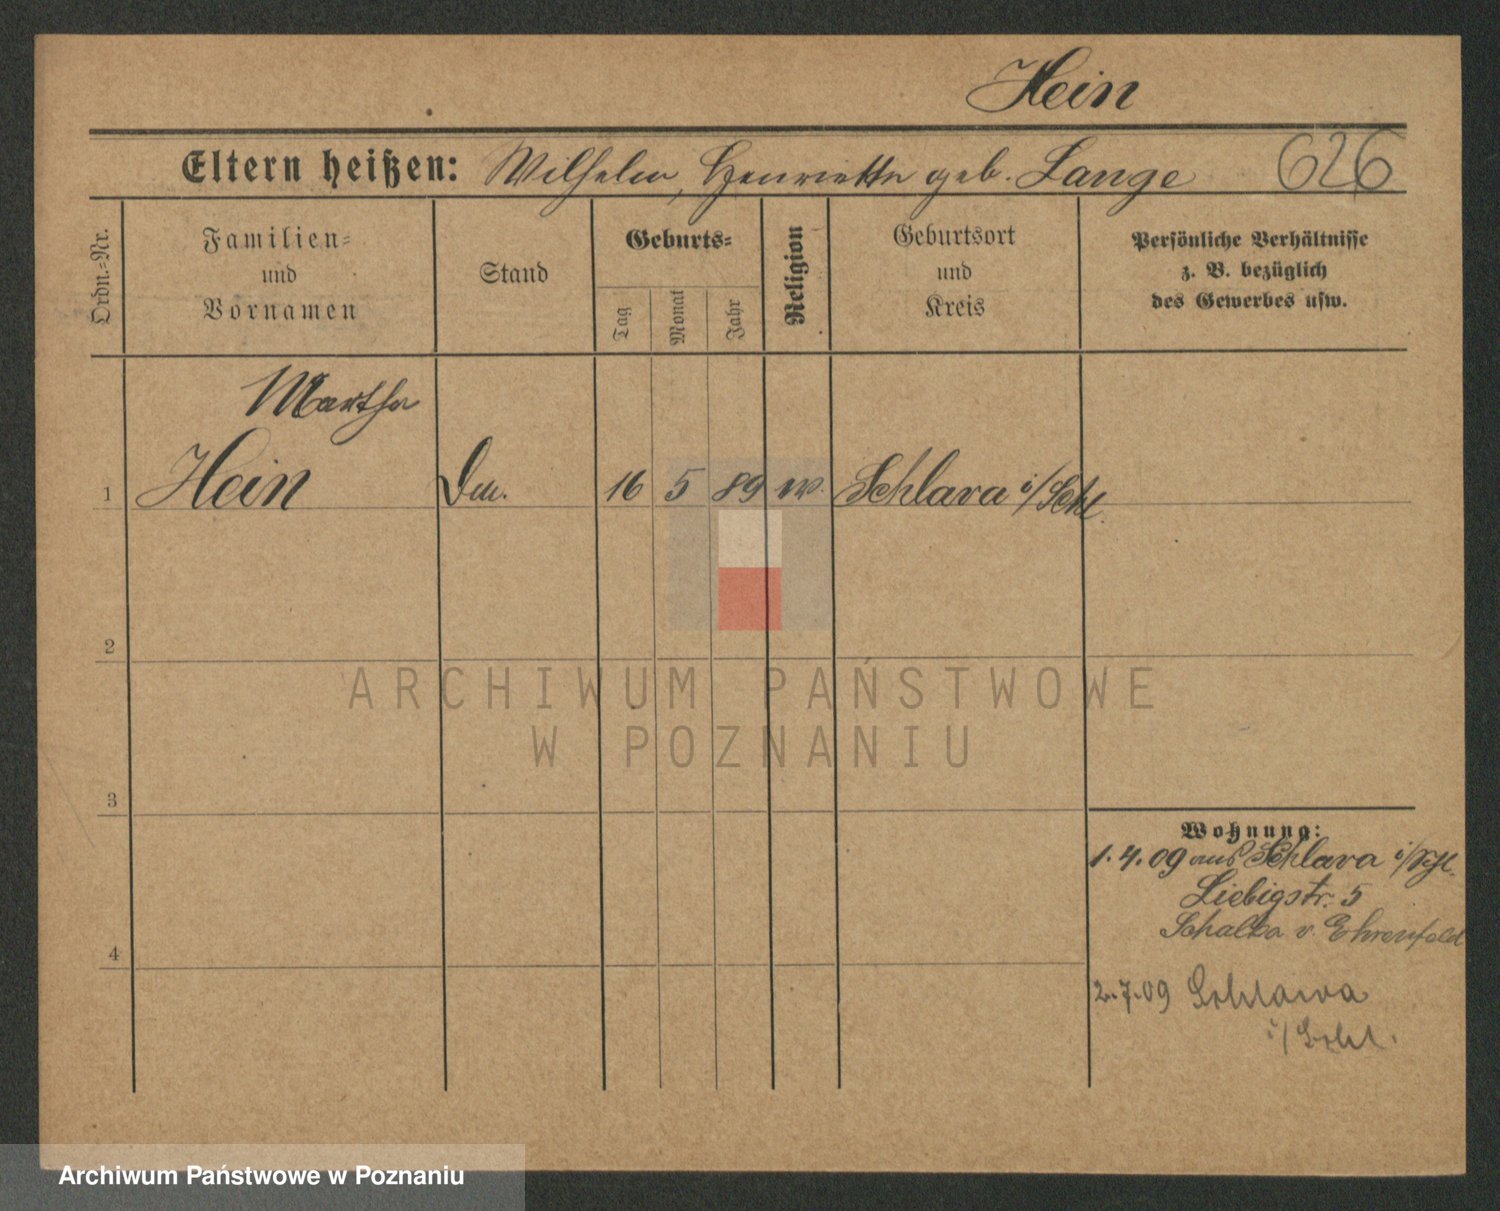 Hein
Eltern heißen: Wilhelm, Henriette geb. Lange 626
Ordn.-Nr.
Familien-
und
Vornamen
Stand
Geburts-
Tag
Monat
Jahr
Religion
Geburtsort
und
Kreis
Persönliche Verhältnisse
z. B. bezüglich
des Gewerbes usw.
Martha
1 Hein 16 5 89 Schlava i/Schl.
2
3
4
Wohnung:
1.4.09 aus Schlava i/Schl.
Liebigstr. 5
v. Ehrenfeld
2.7.09 Schlawa
i/Schl.
ARCHIWUM PAŃSTWOWE
W POZNANIU
Archiwum Państwowe w Poznaniu